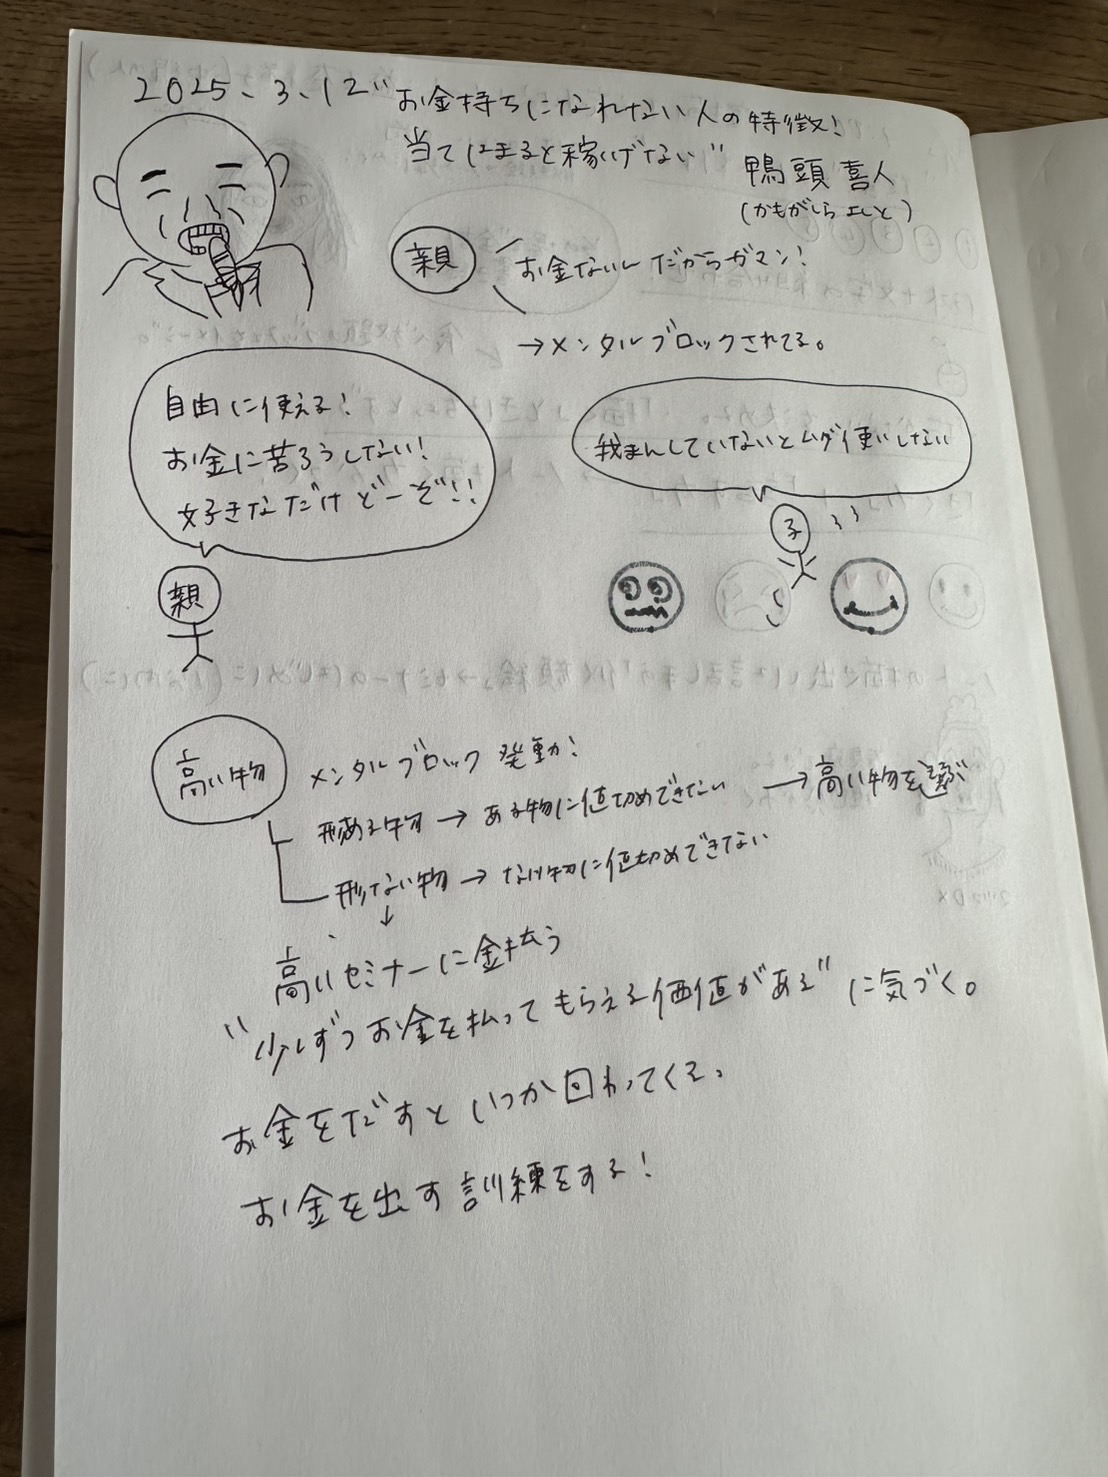 2025、3、12 "お金持ちになれない人の特徴!
当てはまると稼げない"
鴨頭 喜人
(かもがしら よしと)
親
お金ないしだからガマン!
→メンタルブロックされてる。
自由に使える!
お金に苦ろうしない!
好きなだけ どーぞ!!
親
我まんしていないとムダ使いしない
子
高い物
メンタルブロック 発動!
形ある物 → ある物に値切めできない → 高い物を選ぶ
形ない物 → ない物に値切めできない
↓
高いセミナーに金払う
"少しずつお金を払ってもらえる価値がある"に気づく。
お金をだすといつか回わってくる。
お金を出す訓練をする!